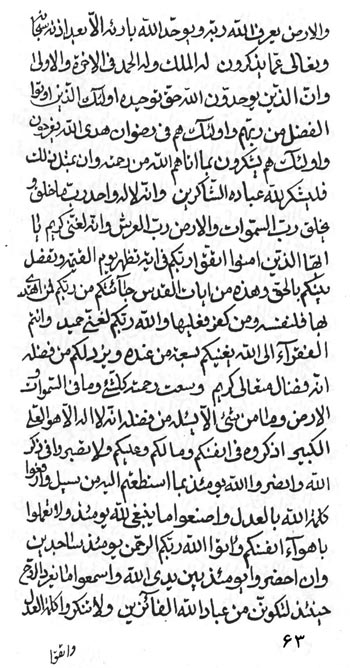 والارض يعرف الله ربه ويوحد الله بارئه الا بعد اذنه سبحانه
وتعالى عما يذكرون له الملك وله الحمد فى الاخرة والاولى
وان الذين يوحدون الله حق توحيده اولئك الذين اوتوا
الفضل من ربهم واولئك هم فى رضوان هدى الله يفرحون
واولئك هم يشكرون بما اتاهم الله من رحمته وان بمثل ذلك
فليشكر لله عباده الشاكرين وانه لاله واحد رب ما خلق و
يخلق رب السموات والارض رب العرش وانه لغنى كريم يا
ايها الذين امنوا اتقوا ربكم فى ايته تظهر يوم القيمة ويفصل
بينكم بالحق وهذه من ايات القدس جائتكم من ربكم لمن اهتدى
بها فلنفسه ومن كفر فعليها والله ربكم لغنى حميد وانتم
الفقرآء الى الله يغنيكم بسعة من عنده ويزدلكم من فضله
انه فضال متعالى كريم وسعت رحمته كلشئ وما فى السموات و
الارض وما من شئ الا يسئل من فضله انه لا اله الا هو العلى
الكبير اذكروه فى انفسكم ومالكم وعليكم ولا تصبروا فى ذكر
الله وانصروا الله يومئذ بما استطعتم اليه من سبيل وارفعوا
كلمة الله بالعدل واصنعوا ما ينبغى لله يومئذ ولا تعملوا
باهوآء انفسكم واتوا الله ربكم الرحمن يومئذ ساجدين
وان احضروا يومئذ بين يدى الله واسمعوا ما يغرد الروح
حينئذ لتكونن من عباد الله الفائزين ولا تنكروا كلمة العدل
واتقوا
٦٣